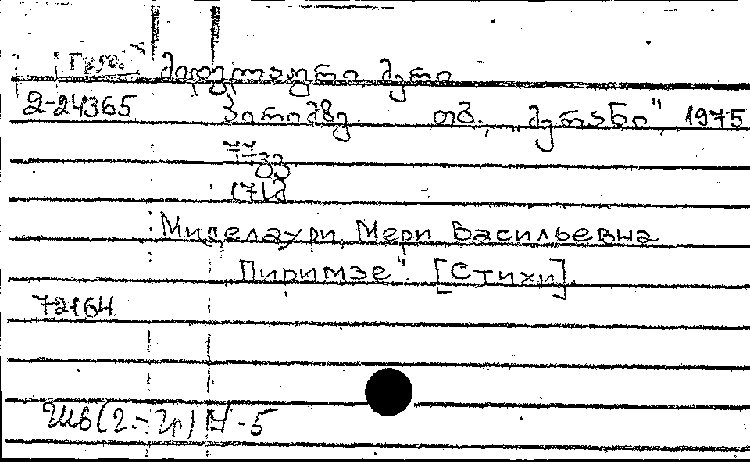 Груз. მიდელაური მერი
2-24365 პირიმზე. თბ., „მერანი" 1975
77 გვ
(71ძ
Миделаури, Мери Васильевна
Пиримзе". [Стихи].
72164
Ш6(2=Гр) -5